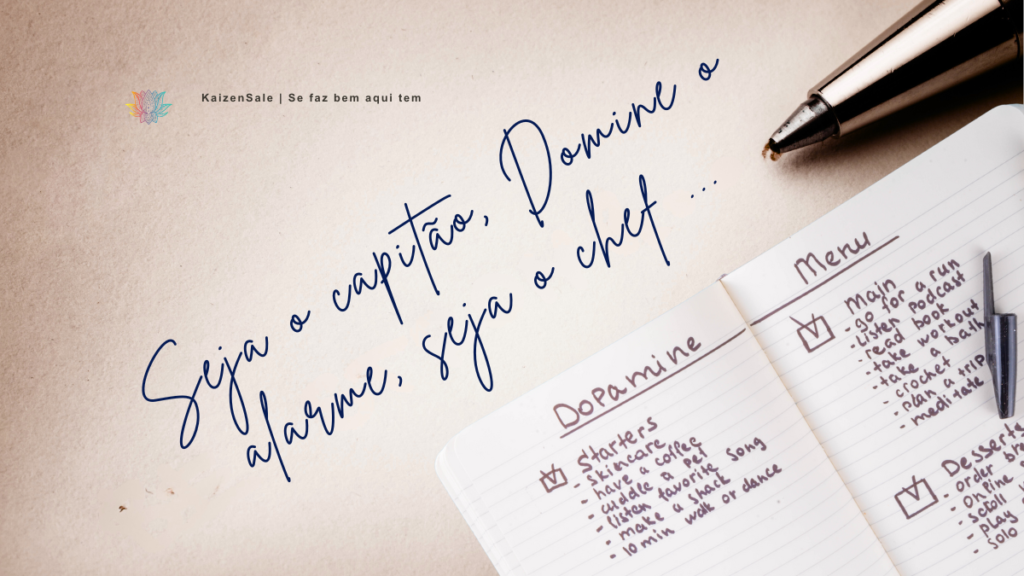 KaizenSale | Se faz bem aqui tem
Seja o capitão, Domine o
alarme, seja o chef ...
Dopamine
Starters
- skincare
- have a coffee
- cuddle a pet
- listen favorite song
- make a snack
- 10 min walk or dance
Menu
Main
- go for a run
- Listen Podcast
- read book
- take workout
- take a bath
- crochet
- plan a trip
- meditate
Desserts
- order
- online
- scroll
- play
- solo